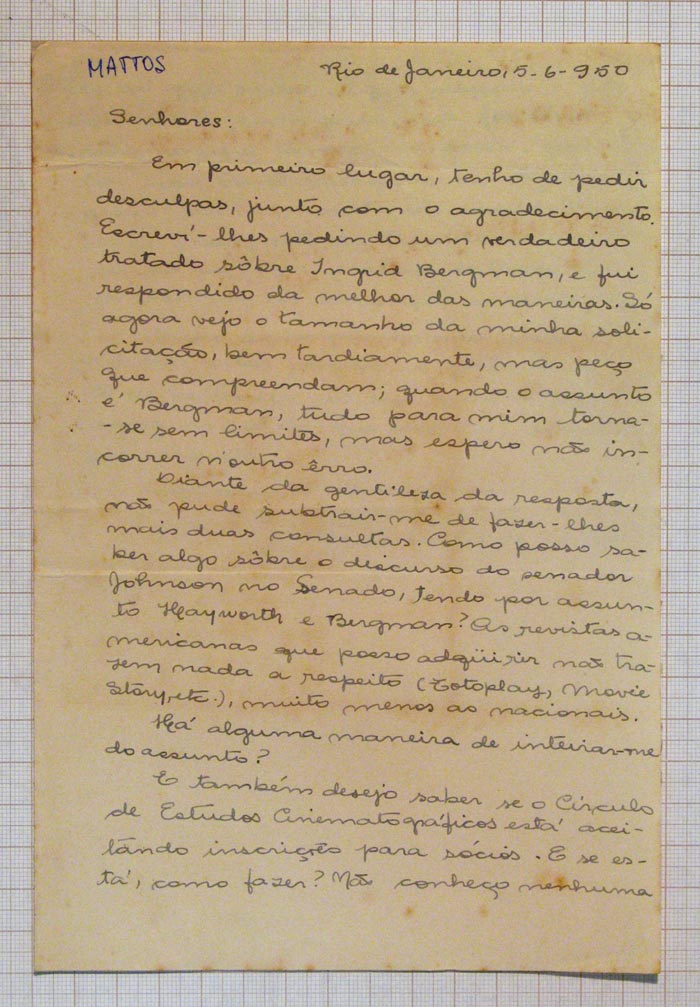 MATTOS
Rio de Janeiro, 5-6-950
Senhores:
Em primeiro lugar, tenho de pedir
desculpas, junto com o agradecimento.
Escreví-lhes pedindo um verdadeiro
tratado sôbre Ingrid Bergman, e fui
respondido da melhor das maneiras. Só
agora vejo o tamanho da minha soli-
citação, bem tardiamente, mas peço
que compreendam; quando o assunto
é Bergman, tudo para mim torna-
-se sem limites, mas espero não in-
correr n'outro êrro.
Diante da gentileza da resposta,
não pude subtrair-me de fazer-lhes
mais duas consultas. Como posso sa-
ber algo sôbre o discurso do senador
Johnson no Senado, tendo por assun-
to Hayworth e Bergman? As revistas a-
mericanas que posso adqüirir não tra-
zem nada a respeito (Fotoplay, Movie
Story, etc.), muito menos as nacionais.
Há alguma maneira de inteirar-me
do assunto?
E também desejo saber se o Círculo
de Estudos Cinematográficos está acei-
tando inscrição para sócios. E se es-
tá, como fazer? Não conheço nenhuma